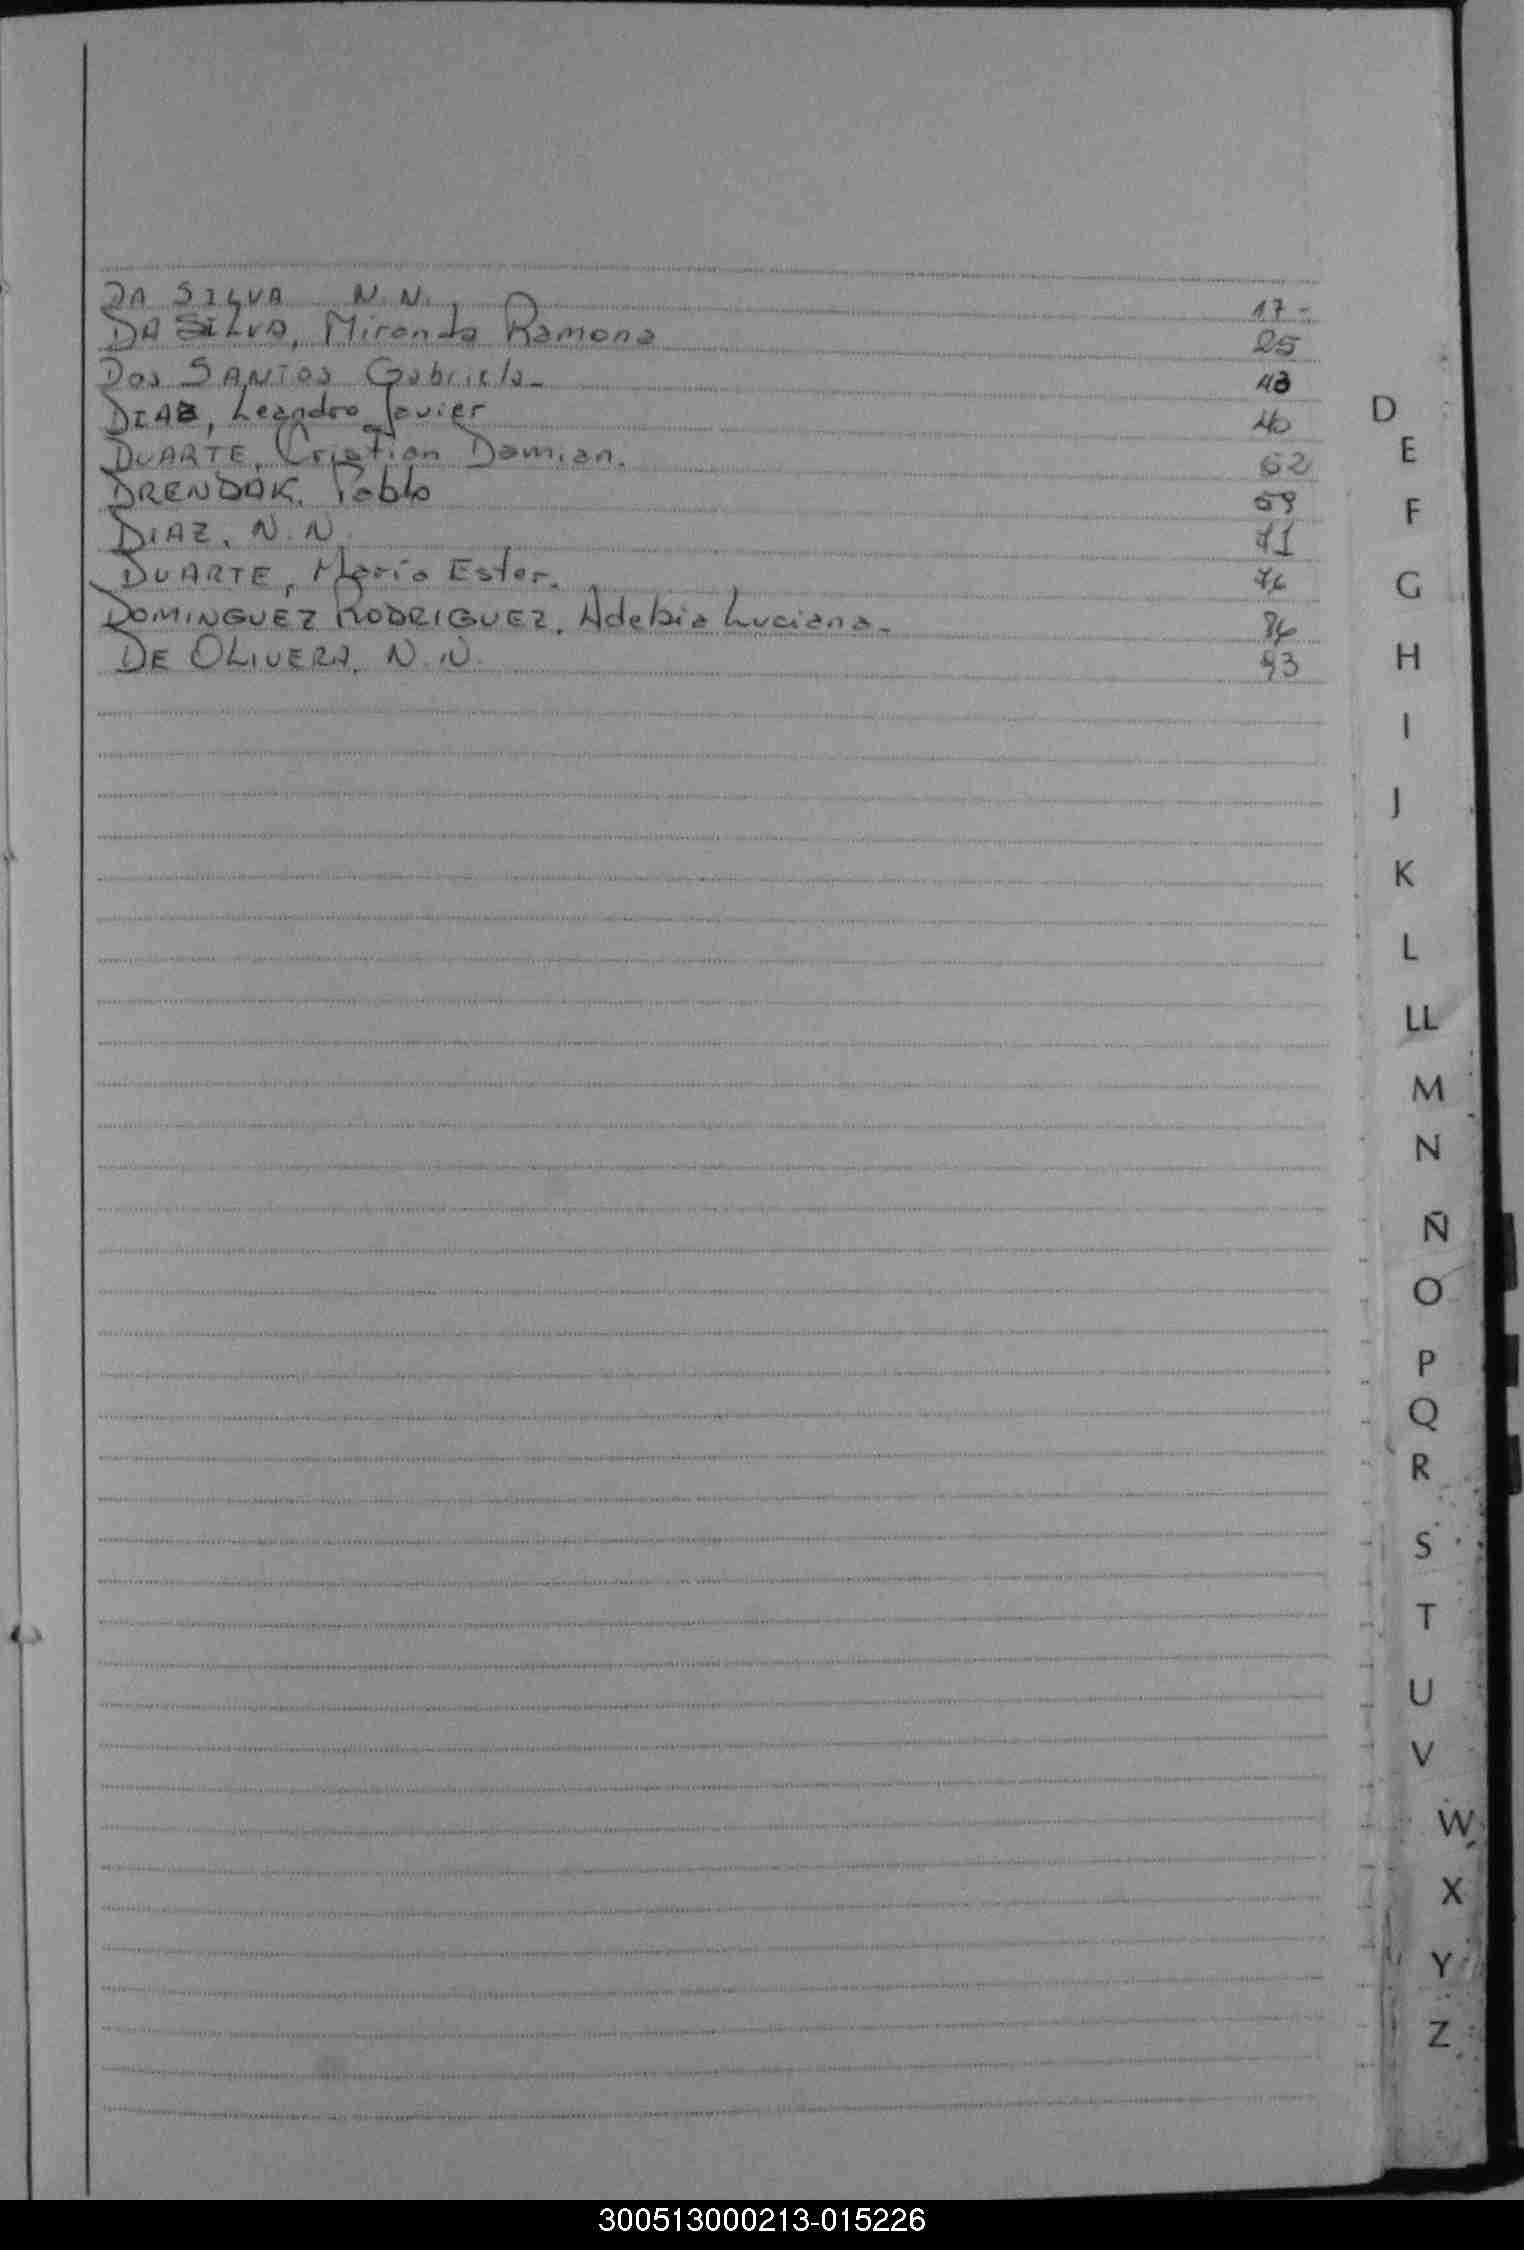 DA SILVA N.N. 17-
DA SILVA, Miranda Ramona 25
Dos SANTOS Gabriela- 43
DIAZ, Leandro Javier 40
DUARTE, Cristian Damian. 62
DRENDAK, Pablo 59
DIAZ, N.N. 71
DUARTE, María Ester. 76
DOMINGUEZ RODRIGUEZ, Luciana- 86
DE OLIVERA, N.N. 93
D
E
F
G
H
I
J
K
L
LL
M
N
Ñ
O
P
Q
R
S
T
U
V
W
X
Y
Z
300513000213-015226